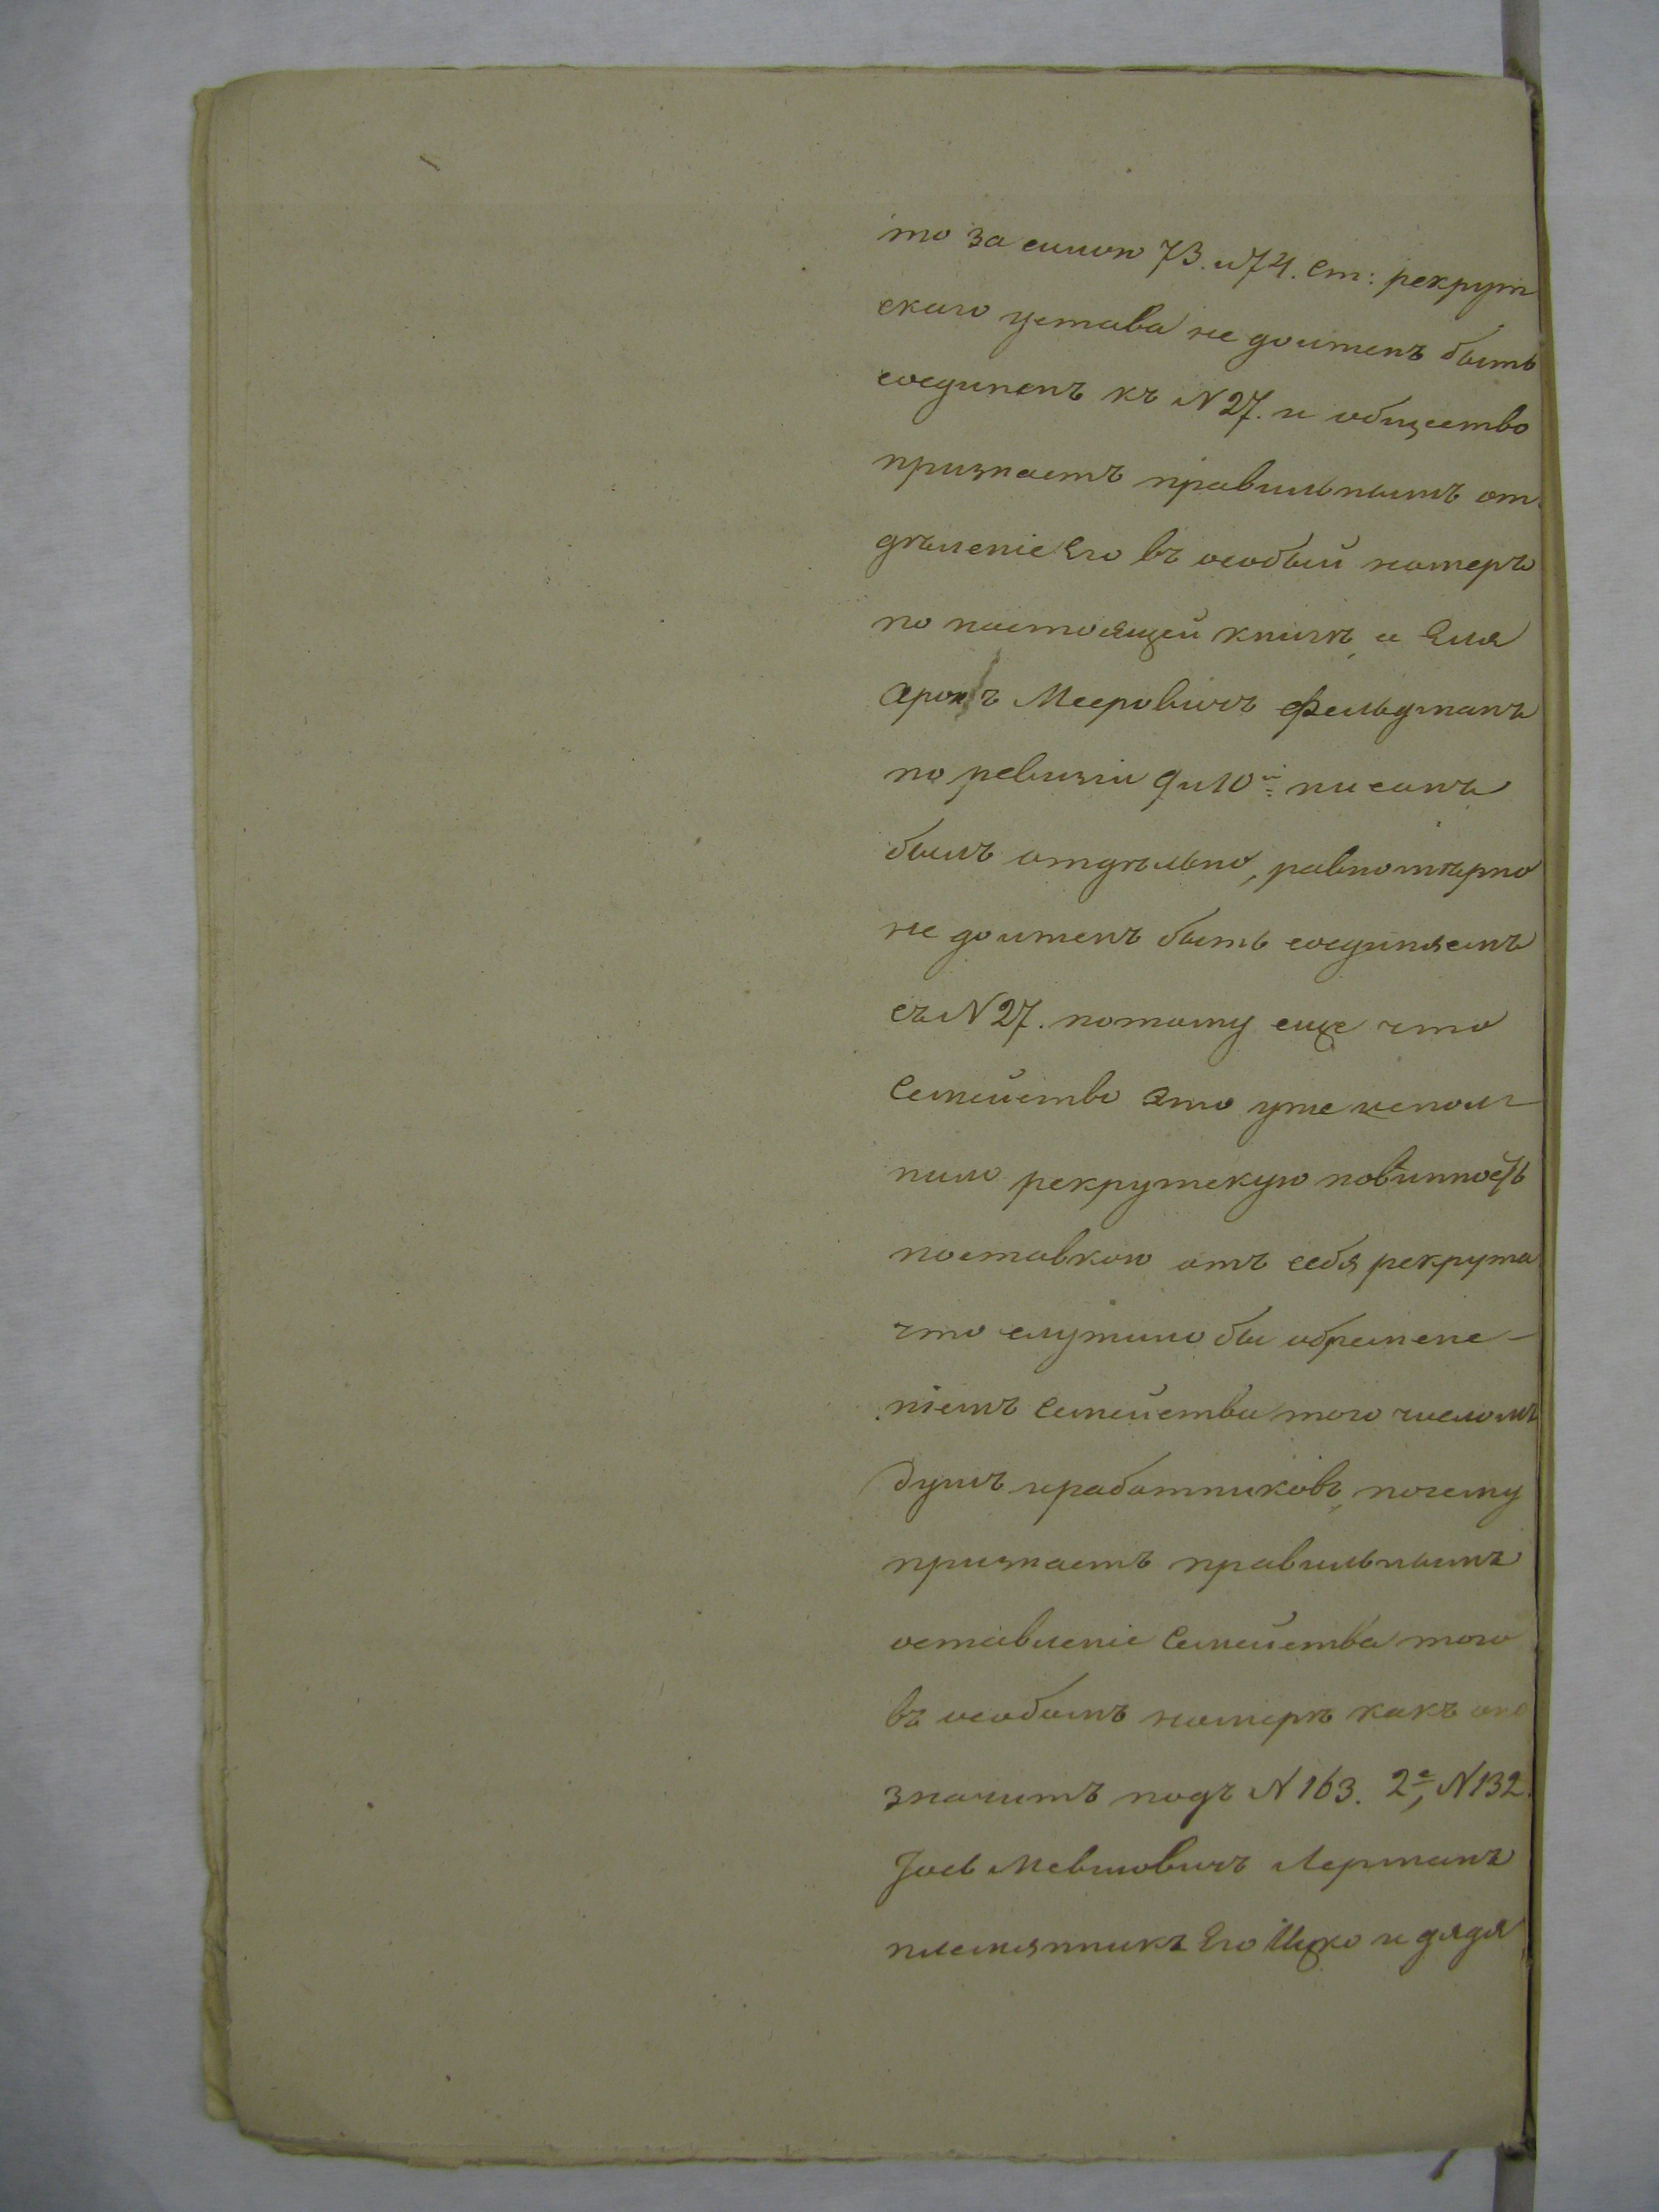 то за силою 73. и 74. ст: рекрут
скаго устава не долженъ быть
соединенъ къ N 27. и общество
признаетъ правильнымъ от
дѣленіе Его въ особый номеръ
по настоящей книгѣ, а Эля
Аронъ Мееровичъ Фельдманъ
по ревизіи 9 и 10й писанъ
былъ отдѣльно, равномѣрно
не долженъ быть соединяемъ
съ N 27. потому еще что
Семейство Это уже испол-
нило рекрутскую повинность
поставкою отъ себя рекрута
что служило бы обремене-
ніемъ Семейства того числомъ
душъ и работниковъ, почему
признаетъ правильнымъ
оставленіе Семейства того
въ особомъ номерѣ какъ оно
значитъ подъ N 163. 2е, N 132.
Іось Мевшовичъ Лерманъ
племянникъ Его Ицко и дядя